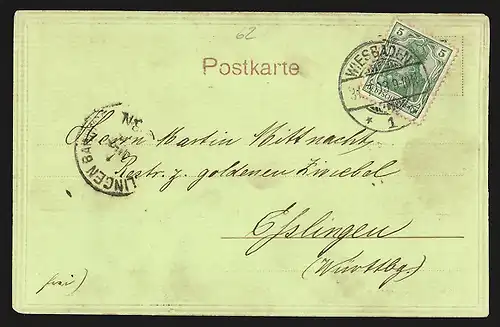 62
Postkarte
5 5
WIESBADEN
* 1
LINGEN BAH
Herrn Martin Mittnacht
Restr. z. goldenen Zwiebel
Esslingen
(Württbg.)
frei)